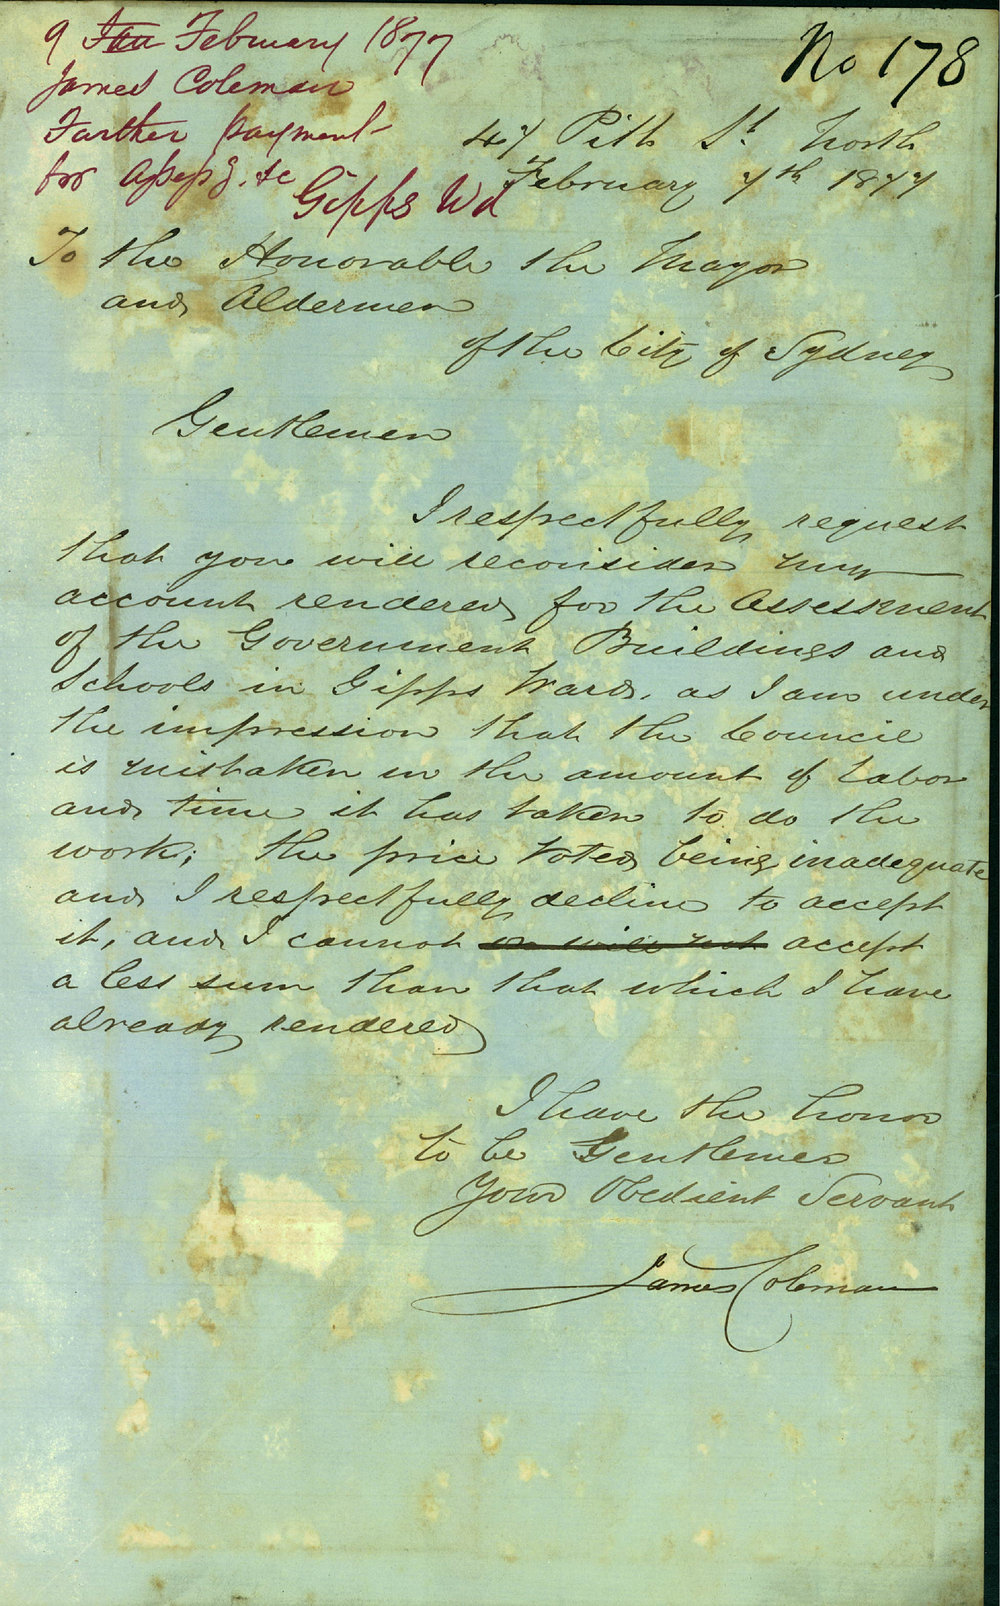 No 178
9 Jan February 1877
James Coleman
Further payment
for apsg. &c
Gipps Wd
47 Pitt St North
February 7th 1877
To the Honorable the Mayor
and Aldermen
of the City of Sydney
Gentlemen
I respectfully request
that you will reconsider my
account rendered for the Assessment
of the Government Buildings and
Schools in Gipps Ward. as I am under
the impression that the Council
is mistaken in the amount of labor
and time it has taken to do the
work; the price voted being inadequate
and I respectfully decline to accept
it, and I cannot or will not accept
a less sum than that which I have
already rendered
I have the honor
to be Gentlemen
Your Obedient Servant
James Coleman